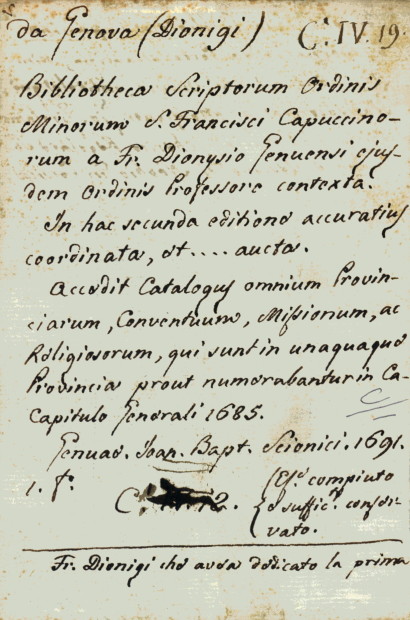 da Genova (Dionigi) C. IV. 19.
Bibliotheca Scriptorum Ordinis
Minorum S. Francisci Capuccino-
rum a Fr. Dionysio Genuensi ejus-
dem Ordinis Professore contexta.
In hac secunda editione accuratius
coordinata, et .... aucta.
Accedit Catalogus omnium Provin-
ciarum, Conventuum, Missionum, ac
Religiosorum, qui sunt in unaquaque
Provincia prout numerabantur in Ca-
Capitulo Generali 1685.
Genuae. Joan. Bapt. Scionici. 1691.
1. f.º
Es.e compiuto
C. 12.
e suffic.te conser-
vato.
Fr. Dionigi che avea dedicato la prima